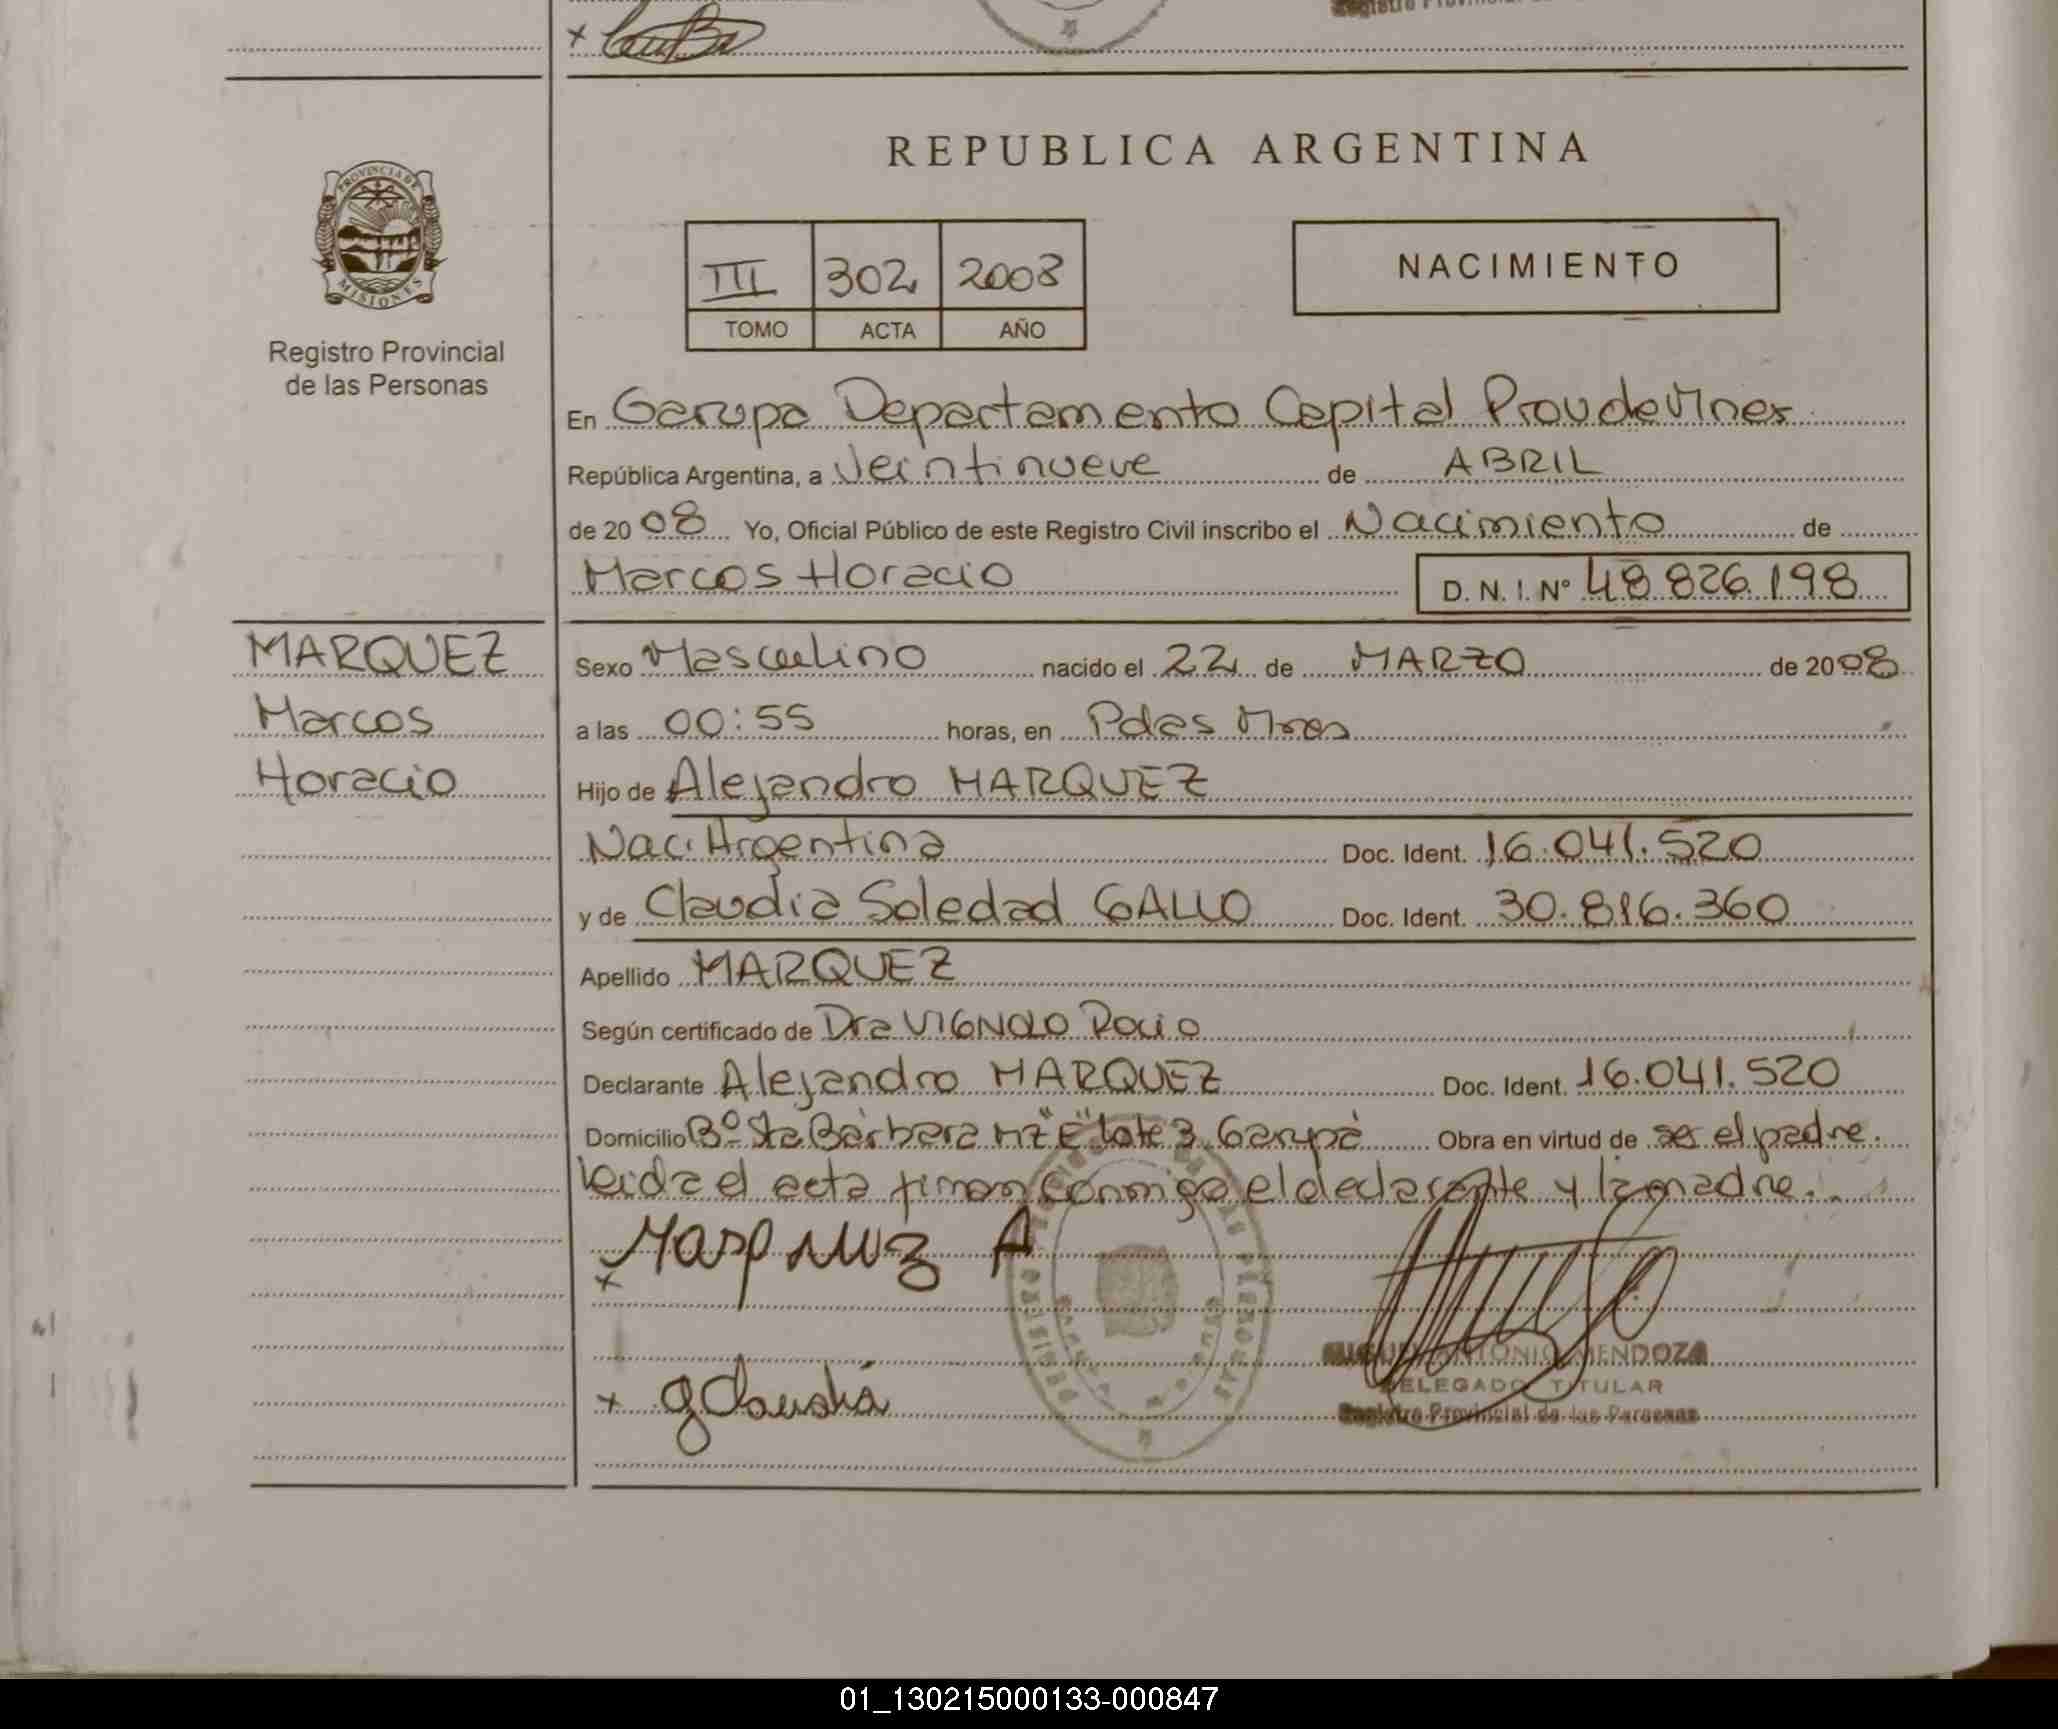 Registro Provincial
REPUBLICA ARGENTINA
PROVINCIA DE
MISIONES
Registro Provincial
de las Personas
III 302 2008
TOMO ACTA AÑO
NACIMIENTO
En Garupa Departamento Capital Prov de Mnes
República Argentina, a Veintinueve de ABRIL
de 2008 Yo, Oficial Público de este Registro Civil inscribo el Nacimiento de
Marcos Horacio D. N. I. Nº 48.826.198
MARQUEZ
Marcos
Horacio
Sexo Masculino nacido el 22 de MARZO de 2008
a las 00:55 horas, en Pdas Mnes
Hijo de Alejandro MARQUEZ
Nac. Argentina Doc. Ident. 16.041.520
y de Claudia Soledad GALLO Doc. Ident. 30.816.360
Apellido MARQUEZ
Según certificado de Dra VIGNOLO Rocio
Declarante Alejandro MARQUEZ Doc. Ident. 16.041.520
Domicilio Bº Sta Bárbara MZ "E" lote 3 Garupá Obra en virtud de ser el padre.
Leida el acta firman conmigo el declarante y la madre.
x Marquez A
x g Claudia
MIGUEL ANTONIO MENDOZA
DELEGADO TITULAR
Registro Provincial de las Personas
01_130215000133-000847